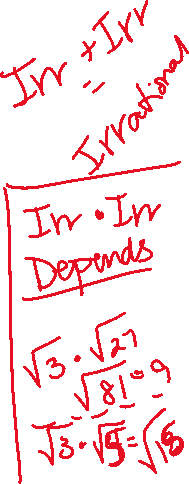 Irr + Irr
=
Irrational
Irr • Irr
Depends
√3 • √27
√81 = 9
√3 • √5 = √15